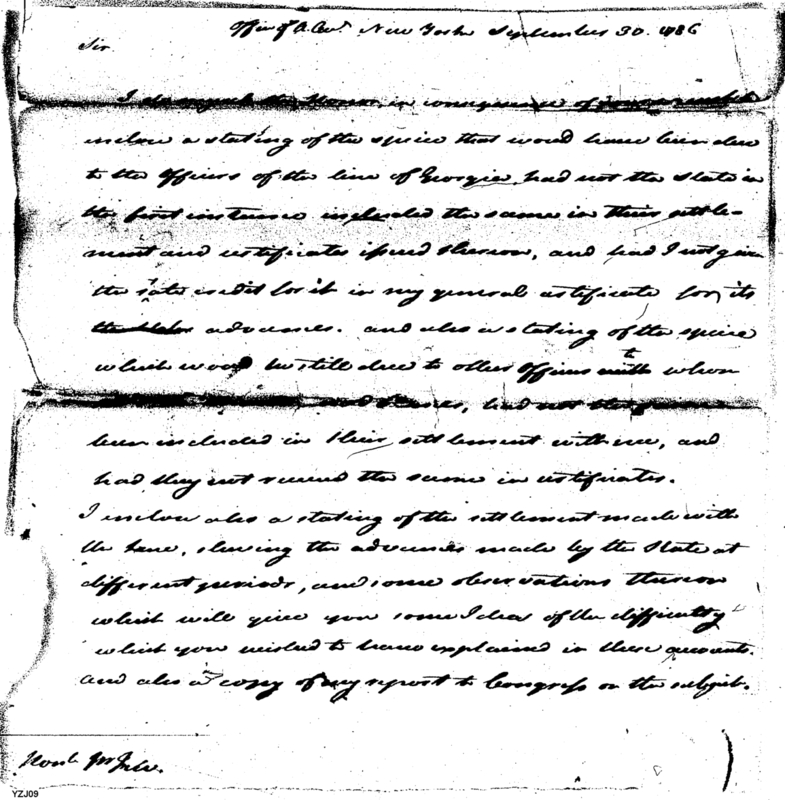 Office of A. Cou.ts New York September 30. 1786
Sir
I do myself the Honor, in consequence of your
inclose a stating of the specie that would have been due
to the Officers of the line of Georgia, had not the State in
the first instance included the same in their settle-
ment and certificates issued thereon, and had I not given
the State credit for it in my general certificate for its
advances. and also a stating of the specie
which would be still due to other Officers to whom
had not the same
been included in their settlement with me, and
had they not received the same in certificates.
I inclose also a stating of the settlement made with
the same, shewing the advances made by the State at
different periods, and some observations thereon
which will give you some Idea of the difficulty
which you wished to have explained in these accounts.
and also a copy of my report to Congress on the subject.
Honble Mr Few.
YZJ09